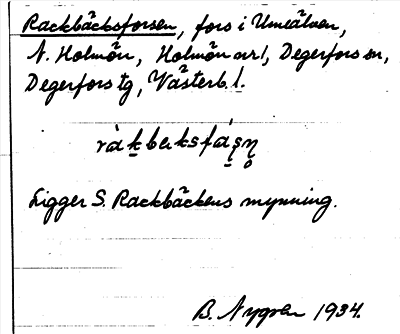 Rackbäcksforsen, fors i Umeälven,
N. Holmön, Holmön nr 1, Degerfors sn,
Degerfors tg, Västerb. l.
Ligger S. Rackbäckens mynning.
B. Nygren 1934.